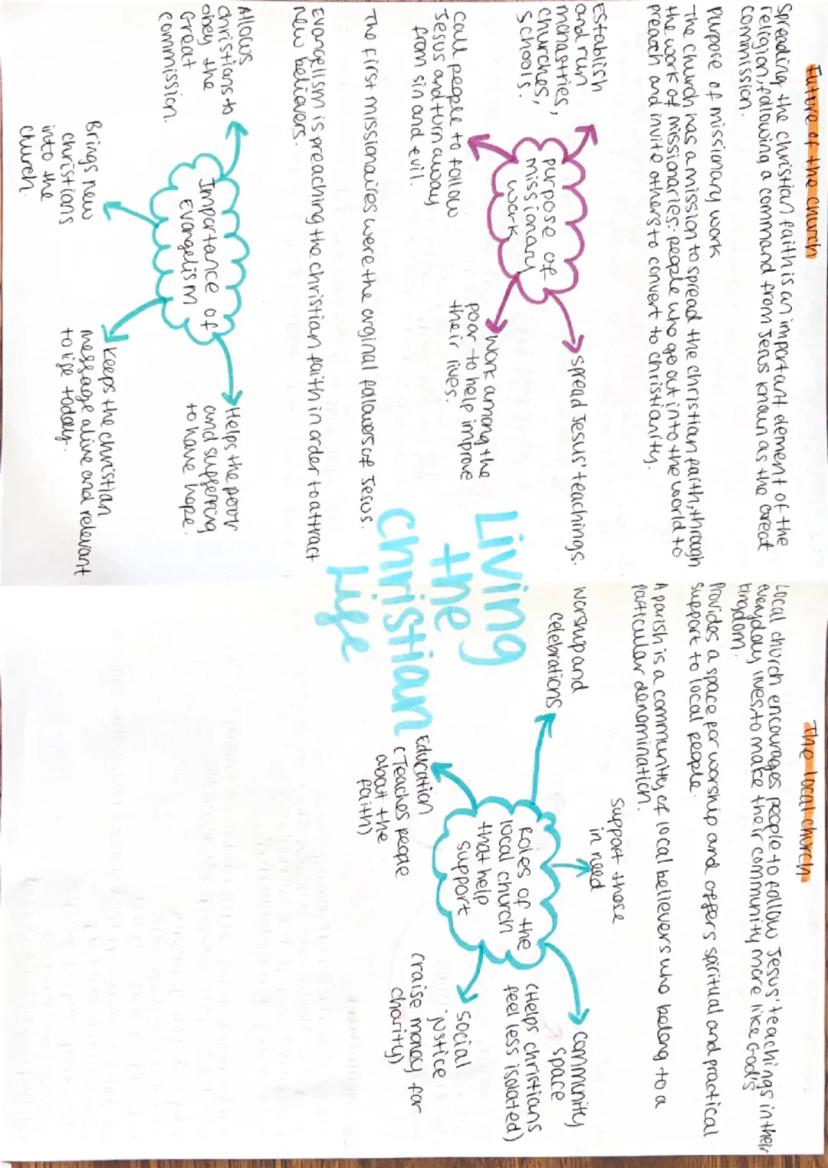 Future of the church
Spreading the christian faith is an important element of the
religion, following a command from Jesus known as the Great
commission.
Purpose of missionary work
The church has a mission to spread the christian faith, through
the work of missionaries: people who go out into the world to
preach and invite others to convert to christianity.
Establish
and run
monastries,
churches,
schools.
spread Jesus' teachings.
purpose of
missionary
work
Call people to follow
Jesus and turn away
from sin and evil.
Work among the
poor to help improve
their lives.
The first missionaires were the orginal followers of Jesus.
Evangelism is preaching the christian faith in order to attract
new believers.
Allows
christians to
obey the
Great
commission.
Helps the poor
and suffering
to have hope.
Importance of
Evangelism
Brings new
christians
into the
church.
Keeps the christian
message alive and relevant
to life today.
Living
the
christian
Life
The local church
Local church encourages people to follow Jesus' teachings in their
everyday lives, to make their community more like God's
kingdom.
Provides a space for worship and offers spiritual and practical
support to local people.
A parish is a community of local believers who belong to a
particular denomination.
Worship and
celebrations
Support those
in need
Community
space
(Helps christians
feel less isolated)
Roles of the
local church
that help
support
Education
(Teaches people
about the
faith)
Social
justice
(raise money for
charity)